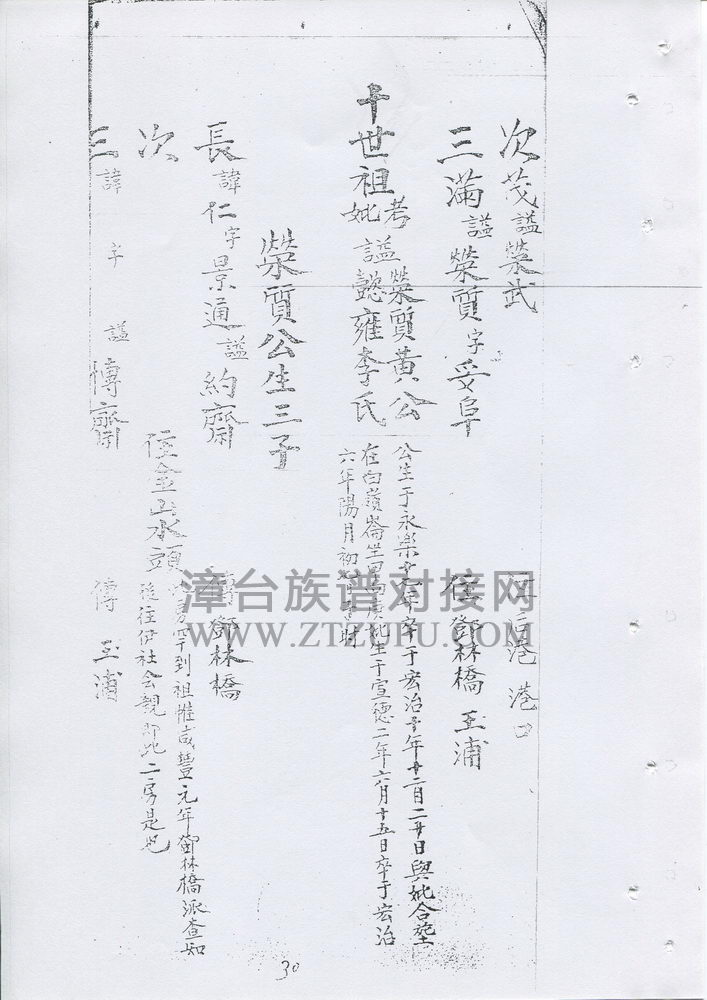 次茂謚榮武
港口
三滿謚榮質字妥阜 住鄧林橋 玉浦
十世祖考謚榮質黃公
妣謚懿雍李氏
公生于永樂 年卒于宏治 年廿二月二廿日與妣合塟
在白 崙坐 庚妣生于宣德二年六月十五日卒于宏治
六年陽月初 時
榮質公生三子
長諱仁字景通謚約齋 傳鄧林橋
次 住金山水頭 房罕到祖惟咸豐元年鄧林橋派查知
後往伊社会親即此二房是也
三諱 字 謚博齋 傳玉浦
漳台族谱对接网
WWW.ZTZUPU.COM
30